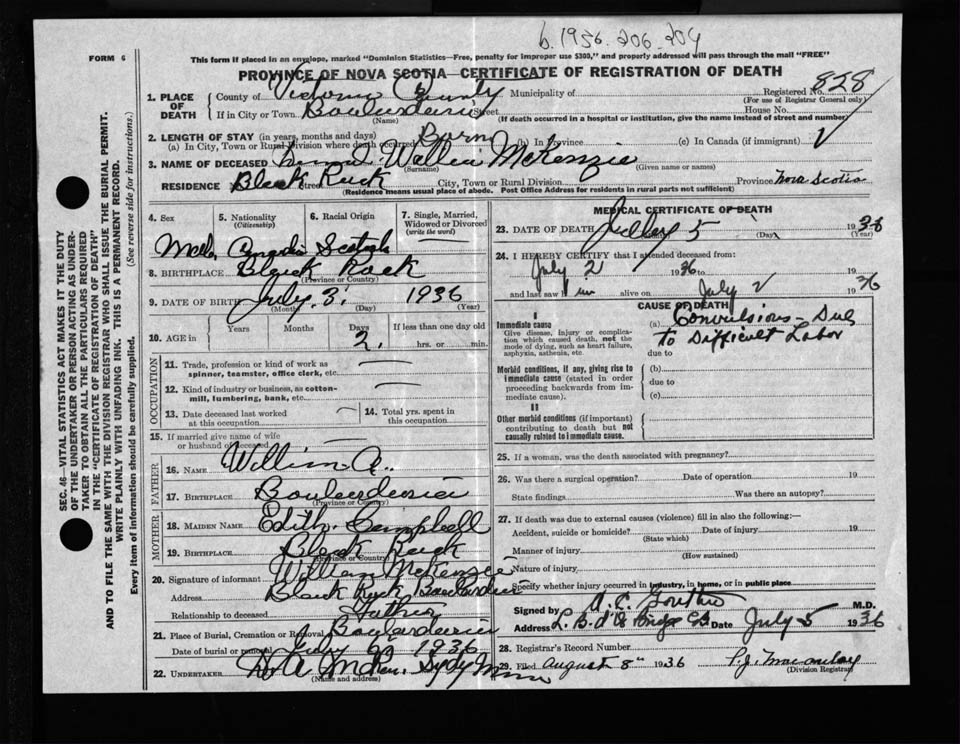 b. 1936. 206. 204
FORM 6
This form if placed in an envelope, marked "Dominion Statistics—Free, penalty for improper use $300," and properly addressed will pass through the mail "FREE"
PROVINCE OF NOVA SCOTIA—CERTIFICATE OF REGISTRATION OF DEATH
828
1. PLACE OF DEATH
County of Victoria County Municipality of Registered No.
(For use of Registrar General only)
If in City or Town Boulardarie Street House No.
(Name) (If death occurred in a hospital or institution, give the name instead of street and number)
2. LENGTH OF STAY (in years, months and days)
(a) In City, Town or Rural Division where death occurred Born (b) In Province (c) In Canada (if immigrant)
3. NAME OF DECEASED Wallice McKenzie
(Surname) (Given name or names)
RESIDENCE Black Rock Street City, Town or Rural Division Province Nova Scotia
(Residence means usual place of abode. Post Office Address for residents in rural parts not sufficient)
4. Sex
5. Nationality (Citizenship)
6. Racial Origin
7. Single, Married, Widowed or Divorced (write the word)
Male Canadian Scotch —
8. BIRTHPLACE Black Rock
(Province or Country)
9. DATE OF BIRTH July 3 1936
(Month) (Day) (Year)
10. AGE in Years Months Days If less than one day old
2. hrs. or min.
OCCUPATION
11. Trade, profession or kind of work as spinner, teamster, office clerk, etc. —
12. Kind of industry or business, as cotton-mill, lumbering, bank, etc. —
13. Date deceased last worked at this occupation —
14. Total yrs. spent in this occupation
15. If married give name of wife or husband of deceased
FATHER
16. NAME William A.
17. BIRTHPLACE Boulardarie
(Province or Country)
MOTHER
18. MAIDEN NAME Edith Campbell
19. BIRTHPLACE Black Rock
(Province or Country)
20. Signature of informant William McKenzie
Address Black Rock Boulardarie
Relationship to deceased Father
21. Place of Burial, Cremation or Removal Boularderie
Date of burial or removal July 1936
22. UNDERTAKER
(Name and address)
MEDICAL CERTIFICATE OF DEATH
23. DATE OF DEATH July 5 1936
(Day) (Year)
24. I HEREBY CERTIFY that I attended deceased from:
July 2 1936 to 19
and last saw him alive on July 2 1936
CAUSE OF DEATH
I
Immediate cause
Give disease, injury or complication which caused death, not the mode of dying, such as heart failure, asphyxia, asthenia, etc.
(a) Convulsions - Due
to Difficult Labor
due to
Morbid conditions, if any, giving rise to immediate cause (stated in order proceeding backwards from immediate cause).
(b)
due to
(c)
II
Other morbid conditions (if important) contributing to death but not causally related to immediate cause.
25. If a woman, was the death associated with pregnancy?
26. Was there a surgical operation? Date of operation 19
State findings Was there an autopsy?
27. If death was due to external causes (violence) fill in also the following:—
Accident, suicide or homicide? Date of injury 19
(State which)
Manner of injury
(How sustained)
Nature of injury
Specify whether injury occurred in industry, in home, or in public place
Signed by M.D.
Address Date July 5 1936
28. Registrar's Record Number
29. Filed August 8" 1936
(Division Registrar)
SEC. 46—VITAL STATISTICS ACT MAKES IT THE DUTY
OF THE UNDERTAKER OR PERSON ACTING AS UNDER-
TAKER TO OBTAIN ALL THE PARTICULARS REQUIRED
IN THE "CERTIFICATE OF REGISTRATION OF DEATH"
AND TO FILE THE SAME WITH THE DIVISION REGISTRAR WHO SHALL ISSUE THE BURIAL PERMIT.
WRITE PLAINLY WITH UNFADING INK. THIS IS A PERMANENT RECORD.
Every item of information should be carefully supplied. (See reverse side for instructions.)